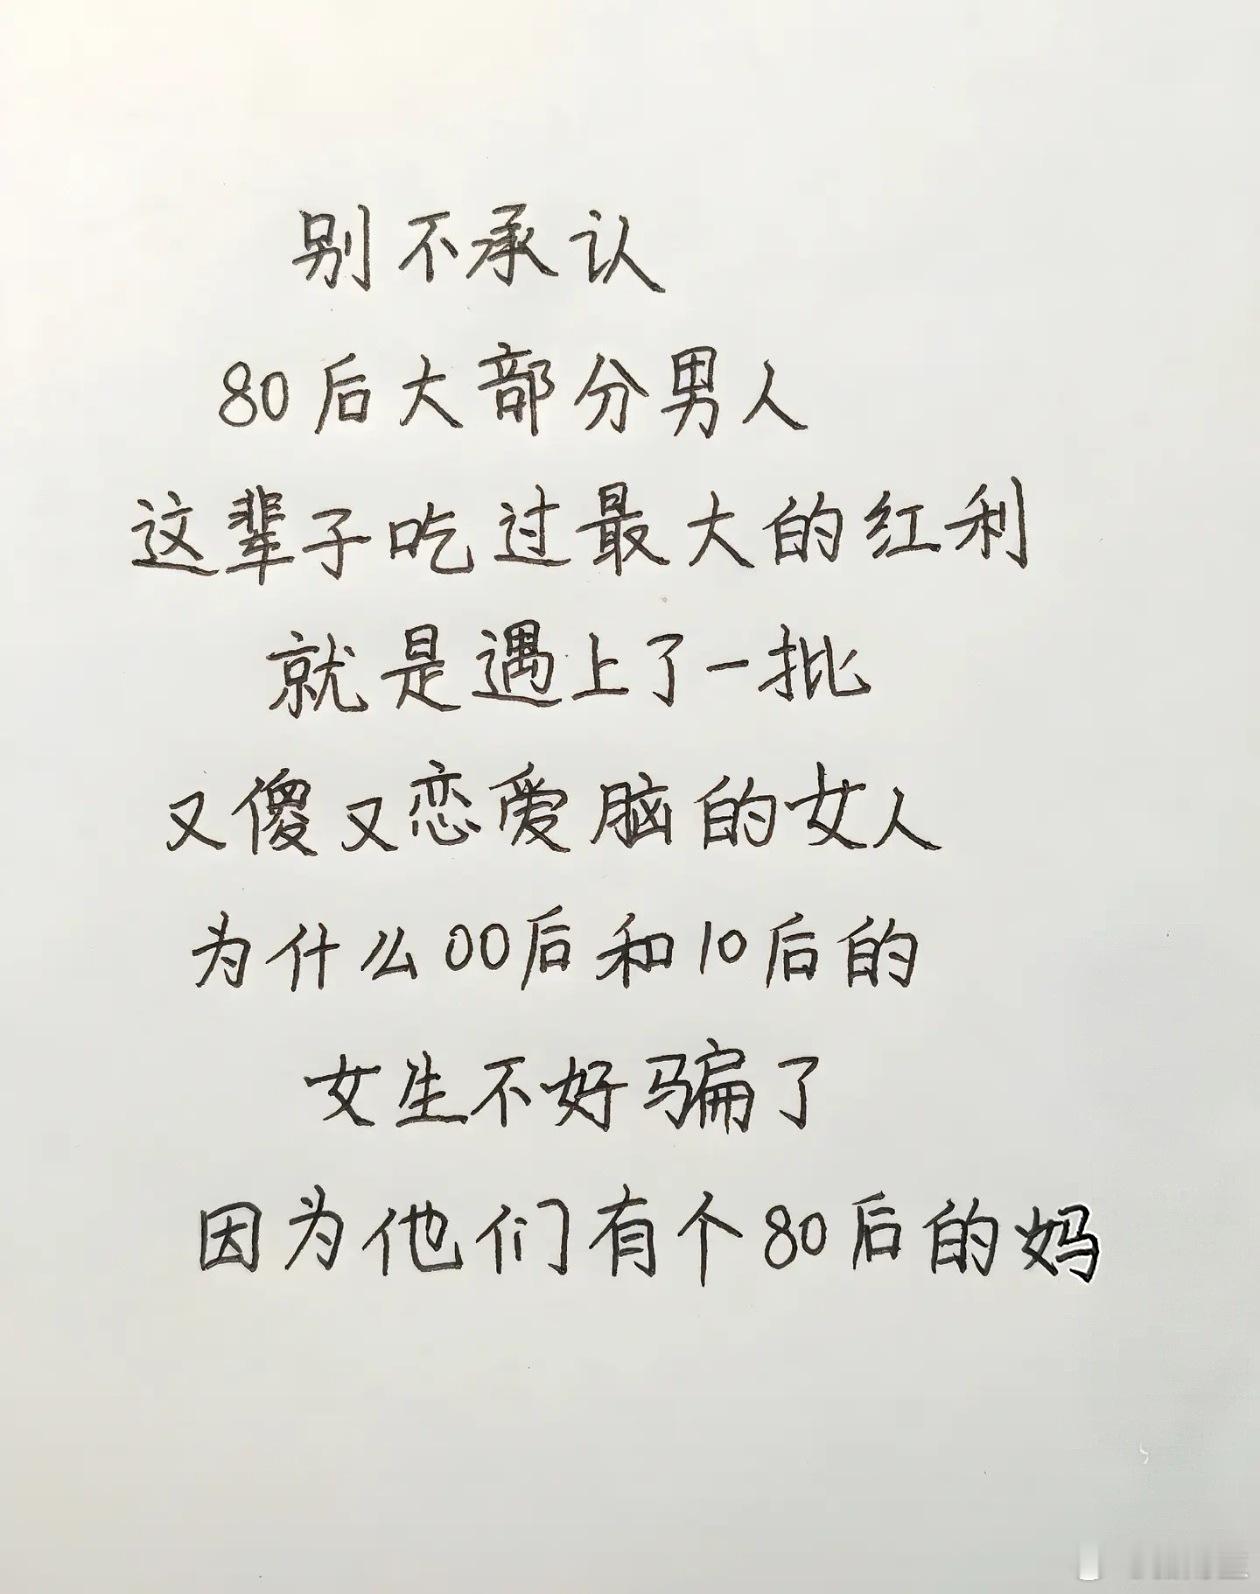 别不承认
80后大部分男人
这辈子吃过最大的红利
就是遇上了一批
又傻又恋爱脑的女人
为什么00后和10后的
女生不好骗了
因为他们有个80后的妈